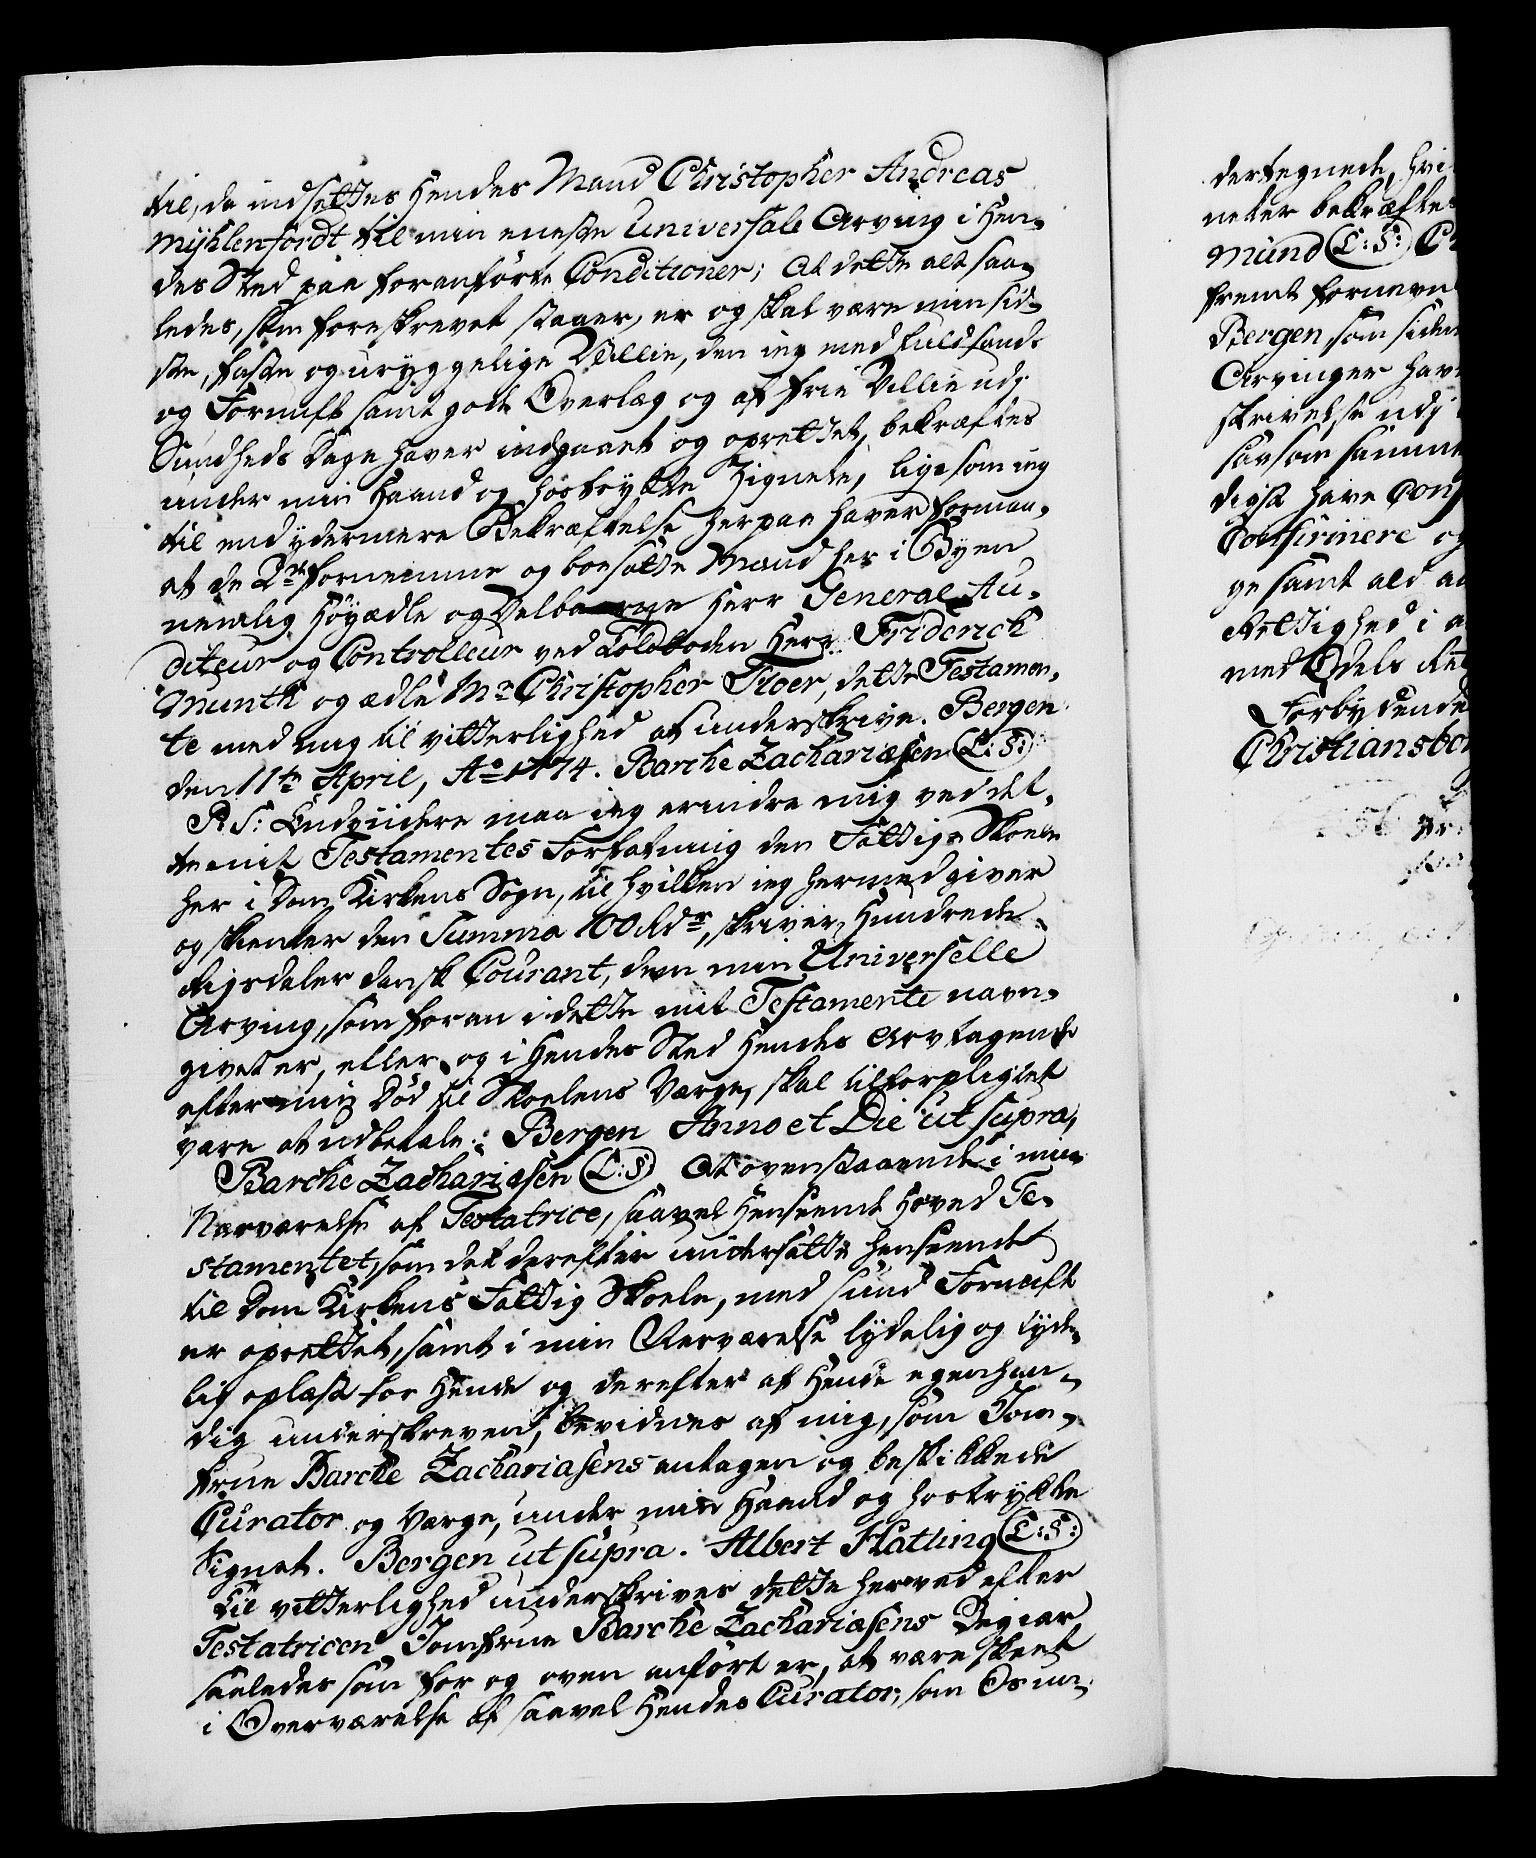 til, da indsættes Hendes Mand Christopher Andreas
Mÿhlenfordt til min eneste Universale Arving i Hen-
des Sted paa foranførte Conditioner; At dette alt saa-
ledes, som foreskrevet staaer, er og skal være min sid-
ste, faste og uryggelige Villie, den ieg med fuld sands
og Fornuft samt godt Overlæg og af frie Villie udj
Sundheds Dage haver indgaaet og oprettet, bekræftes
under min Haand og hostrykte Zignete, ligesom ieg
til end ydermere Bekræftelse herpaa haver forman-
at de 2de fornemme og boesatte Mænd her i Byen
nemlig Høyædle og Velbaarne Herr General Au-
diteur og Controlleur ved Toldboden Herr Friderich
Munth og ædle Mr Christopher Floer, dette Testamen-
te med mig til vitterlighed at underskrive. Bergen
den 11te April, Ao 1774. Barche Zachariæsen (L:S:)
P.S: Endviidere maa ieg erindre mig ved det-
te mit Testamentes Forfatning den Fattige Skoele
her i Dom Kirkens Sogn, til hvilken ieg hermed giver
og skienker den Summa 100 Rdr, skriver Hundrede
Rigsdaler dansk Courant, dem min Universelle
Arving, som foran i dette mit Testamente navn-
givet er, eller og i Hendes Sted Hendes Arvtagende
efter min Død til Skoelens Værge, skal tilforpligtet
være at udbetale. Bergen Anno et Die ut supra,
Barche Zachariæsen (L:S) At ovenstaaende i min
Nærværelse af Testatrice, saavel Henseende Hoved Te-
stamentet, som det derefter undersatte henseende
til Dom Kirkens Fattig Skoele, med sund Fornuft
er oprettet, samt i min Nærværelse lydelig og tyde-
lig oplæst for Hende og derefter af Hende egenhæn-
dig underskreven, bevidnes af mig, som Jom-
frue Barche Zachariæsens antagen og beskikkede
Curator og Værge, under min Haand og hostrykte
Signet. Bergen ut supra. Albert Hatting (L:S:)
Til vitterlighed underskrives dette herved efter
Testatricen Jomfrue Barche Zachariæsens Begiær
saaledes som for og oven anført er, at være skeet
i Overværelse af saavel Hendes Curator, som Os un-
dertegnede, hvi
neter bekræfte
Mund (L:S:)
fremt fornevn
Bergen, som siden
Arvinger hav
skrivelse udj
saasom samme
digst have Con
Confirmere og
ge samt ald a
Rettighed i a
med Odels Re
Forbydende
Christiansbor